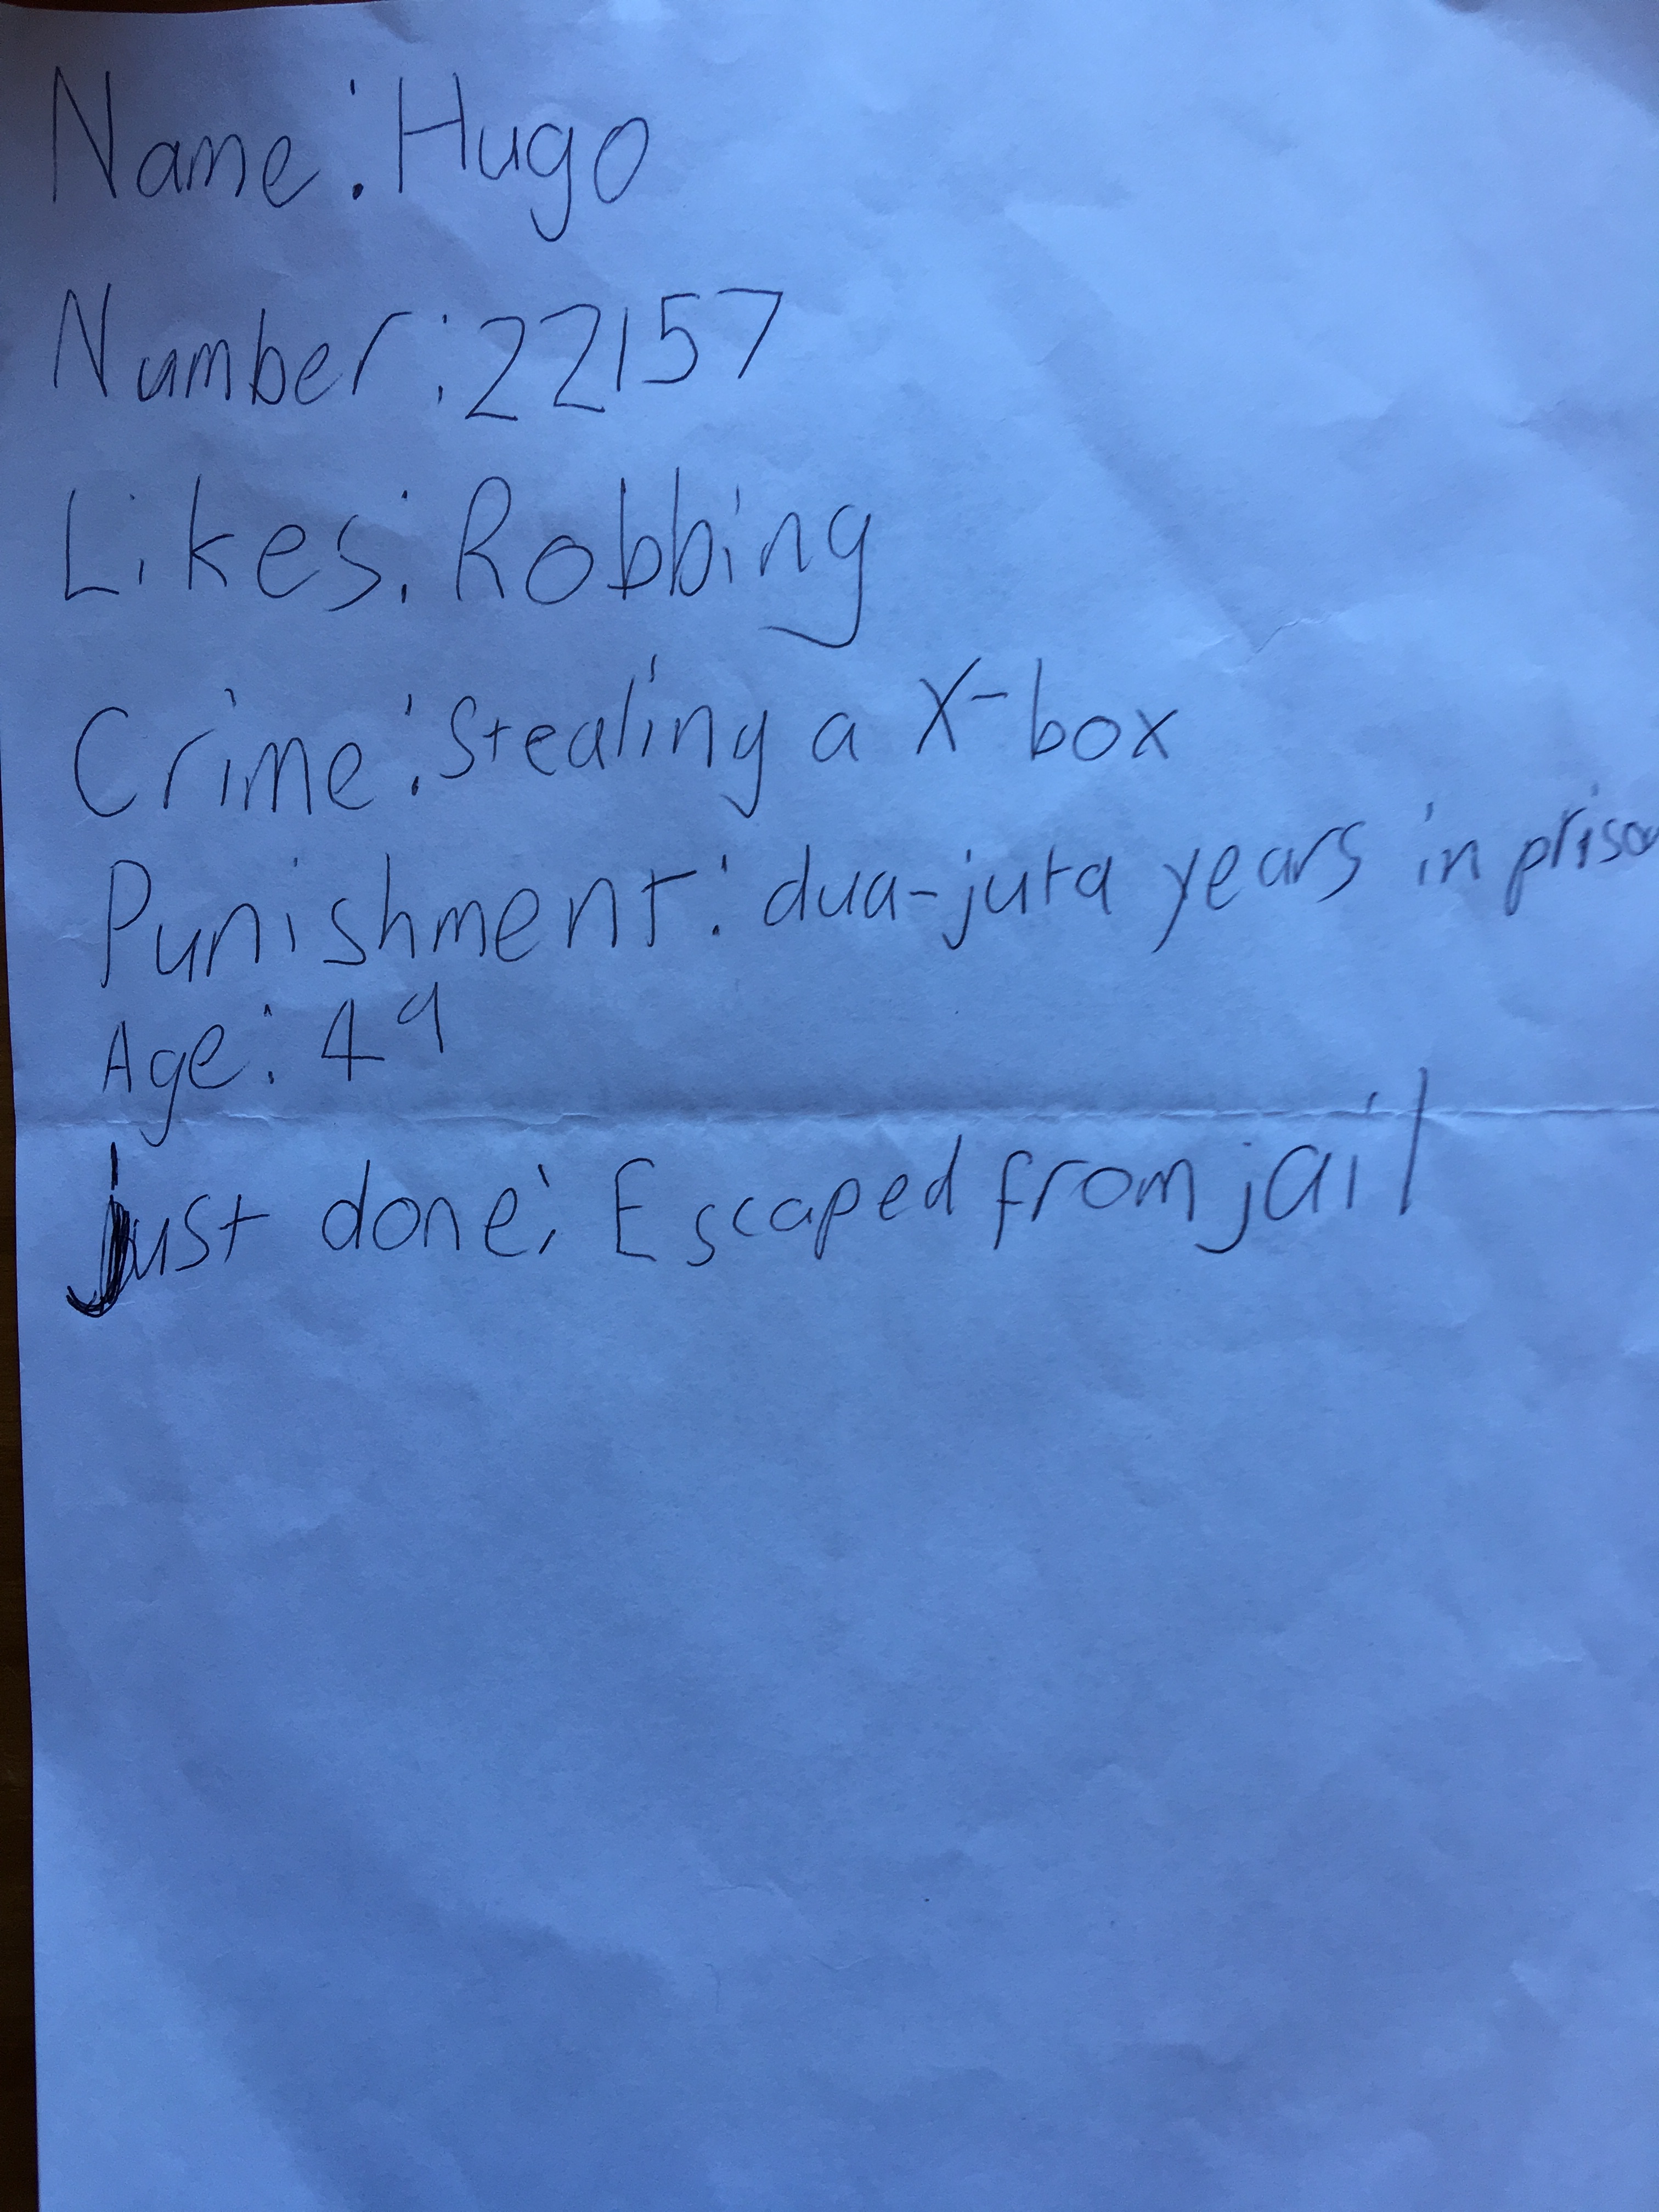 Name: Hugo
Number: 22157
Likes: Robbing
Crime: Stealing a X-box
Punishment: dua-juta years in prison
Age: 49
Just done: Escaped from jail